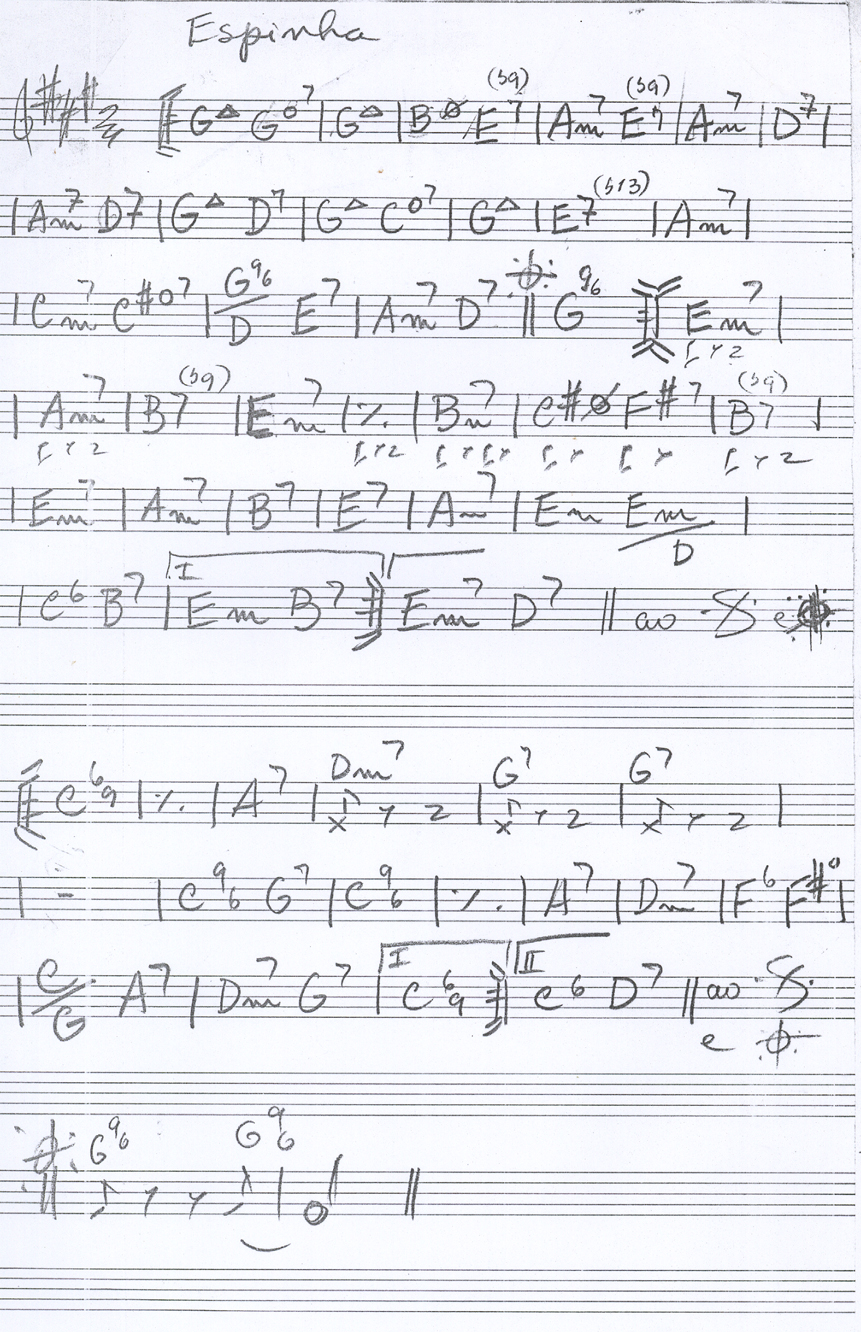 Espinha
2/4 ‖: G△ G°7 | G△ | Bø E7(b9) | Am7 E7(b9) | Am7 | D7 |
| Am7 D7 | G△ D7 | G△ C°7 | G△ | E7(b13) | Am7 |
| Cm7 C#°7 | G9/6/D E7 | Am7 D7 ‖ G9/6 :‖: Em7 |
| Am7 | B7(b9) | Em7 | ٪ | Bm7 | C#ø F#7 | B7(b9) |
| Em7 | Am7 | B7 | E7 | Am7 | Em Em/D |
| C6 B7 | I Em B7 :‖ Em7 D7 ‖ ao 𝄋 e 𝄌
‖: C6/9 | ٪ | A7 | Dm7 | G7 | G7 |
| - | C9/6 G7 | C9/6 | ٪ | A7 | Dm7 | F6 F#° |
| C/G A7 | Dm7 G7 | I C6/9 :‖ II C6 D7 ‖ ao 𝄋
e 𝄌
𝄌 G9/6 G9/6